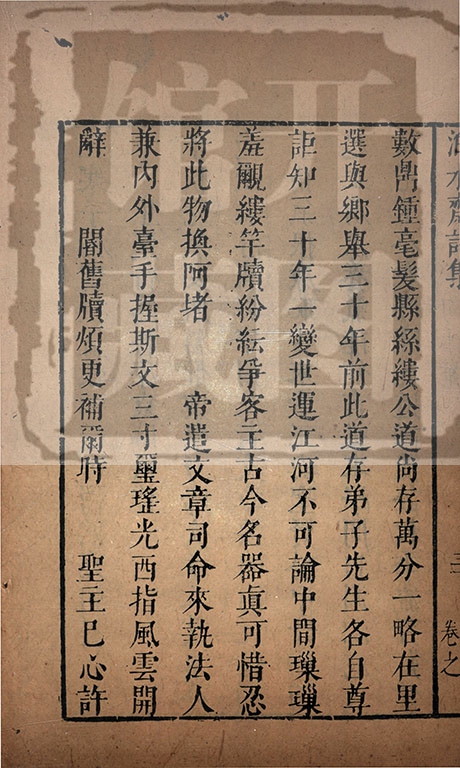 數鼎鍾毫髮縣絲縷公道尙存萬分一略在里
選與鄉舉三十年前此道存弟子先生各自尊
詎知三十年一變世運江河不可論中間璅璅
羞覼縷竿牘紛紜爭客主古今名器眞可惜忍
將此物換阿堵　帝遣文章司命來執法人
兼內外臺手握斯文三寸璽瑤光西指風雲開
辭　閣舊牘煩更補爾時　聖主已心許
卷之